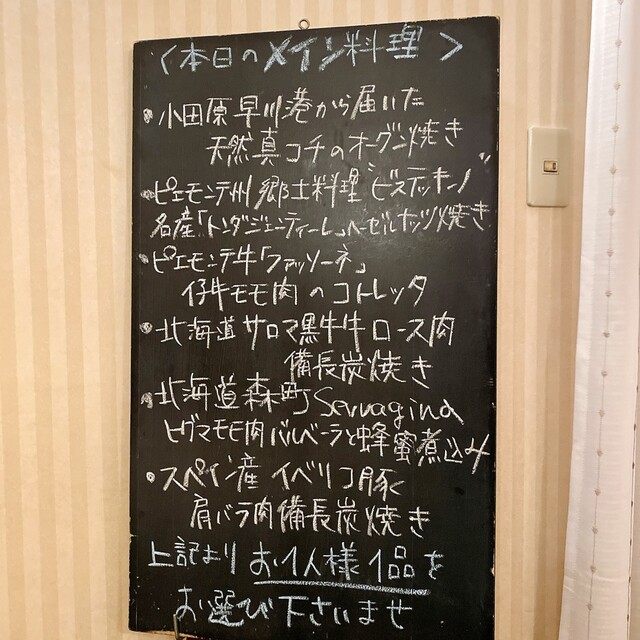 〈本日のメイン料理〉
・小田原早川港から届いた
天然真コチのオーブン焼き
・ピエモンテ州郷土料理"ビステッキーノ"
名産「トンダジェンティーレ」ヘーゼルナッツ焼き
・ピエモンテ牛「ファッソーネ」
仔牛モモ肉のコトレッタ
・北海道サロマ黒牛牛ロース肉
備長炭焼き
・北海道森町Selvagina
ヒグマモモ肉バルベーラと蜂蜜煮込み
・スペイン産イベリコ豚
肩バラ肉備長炭焼き
上記よりお1人様1品を
お選び下さいませ